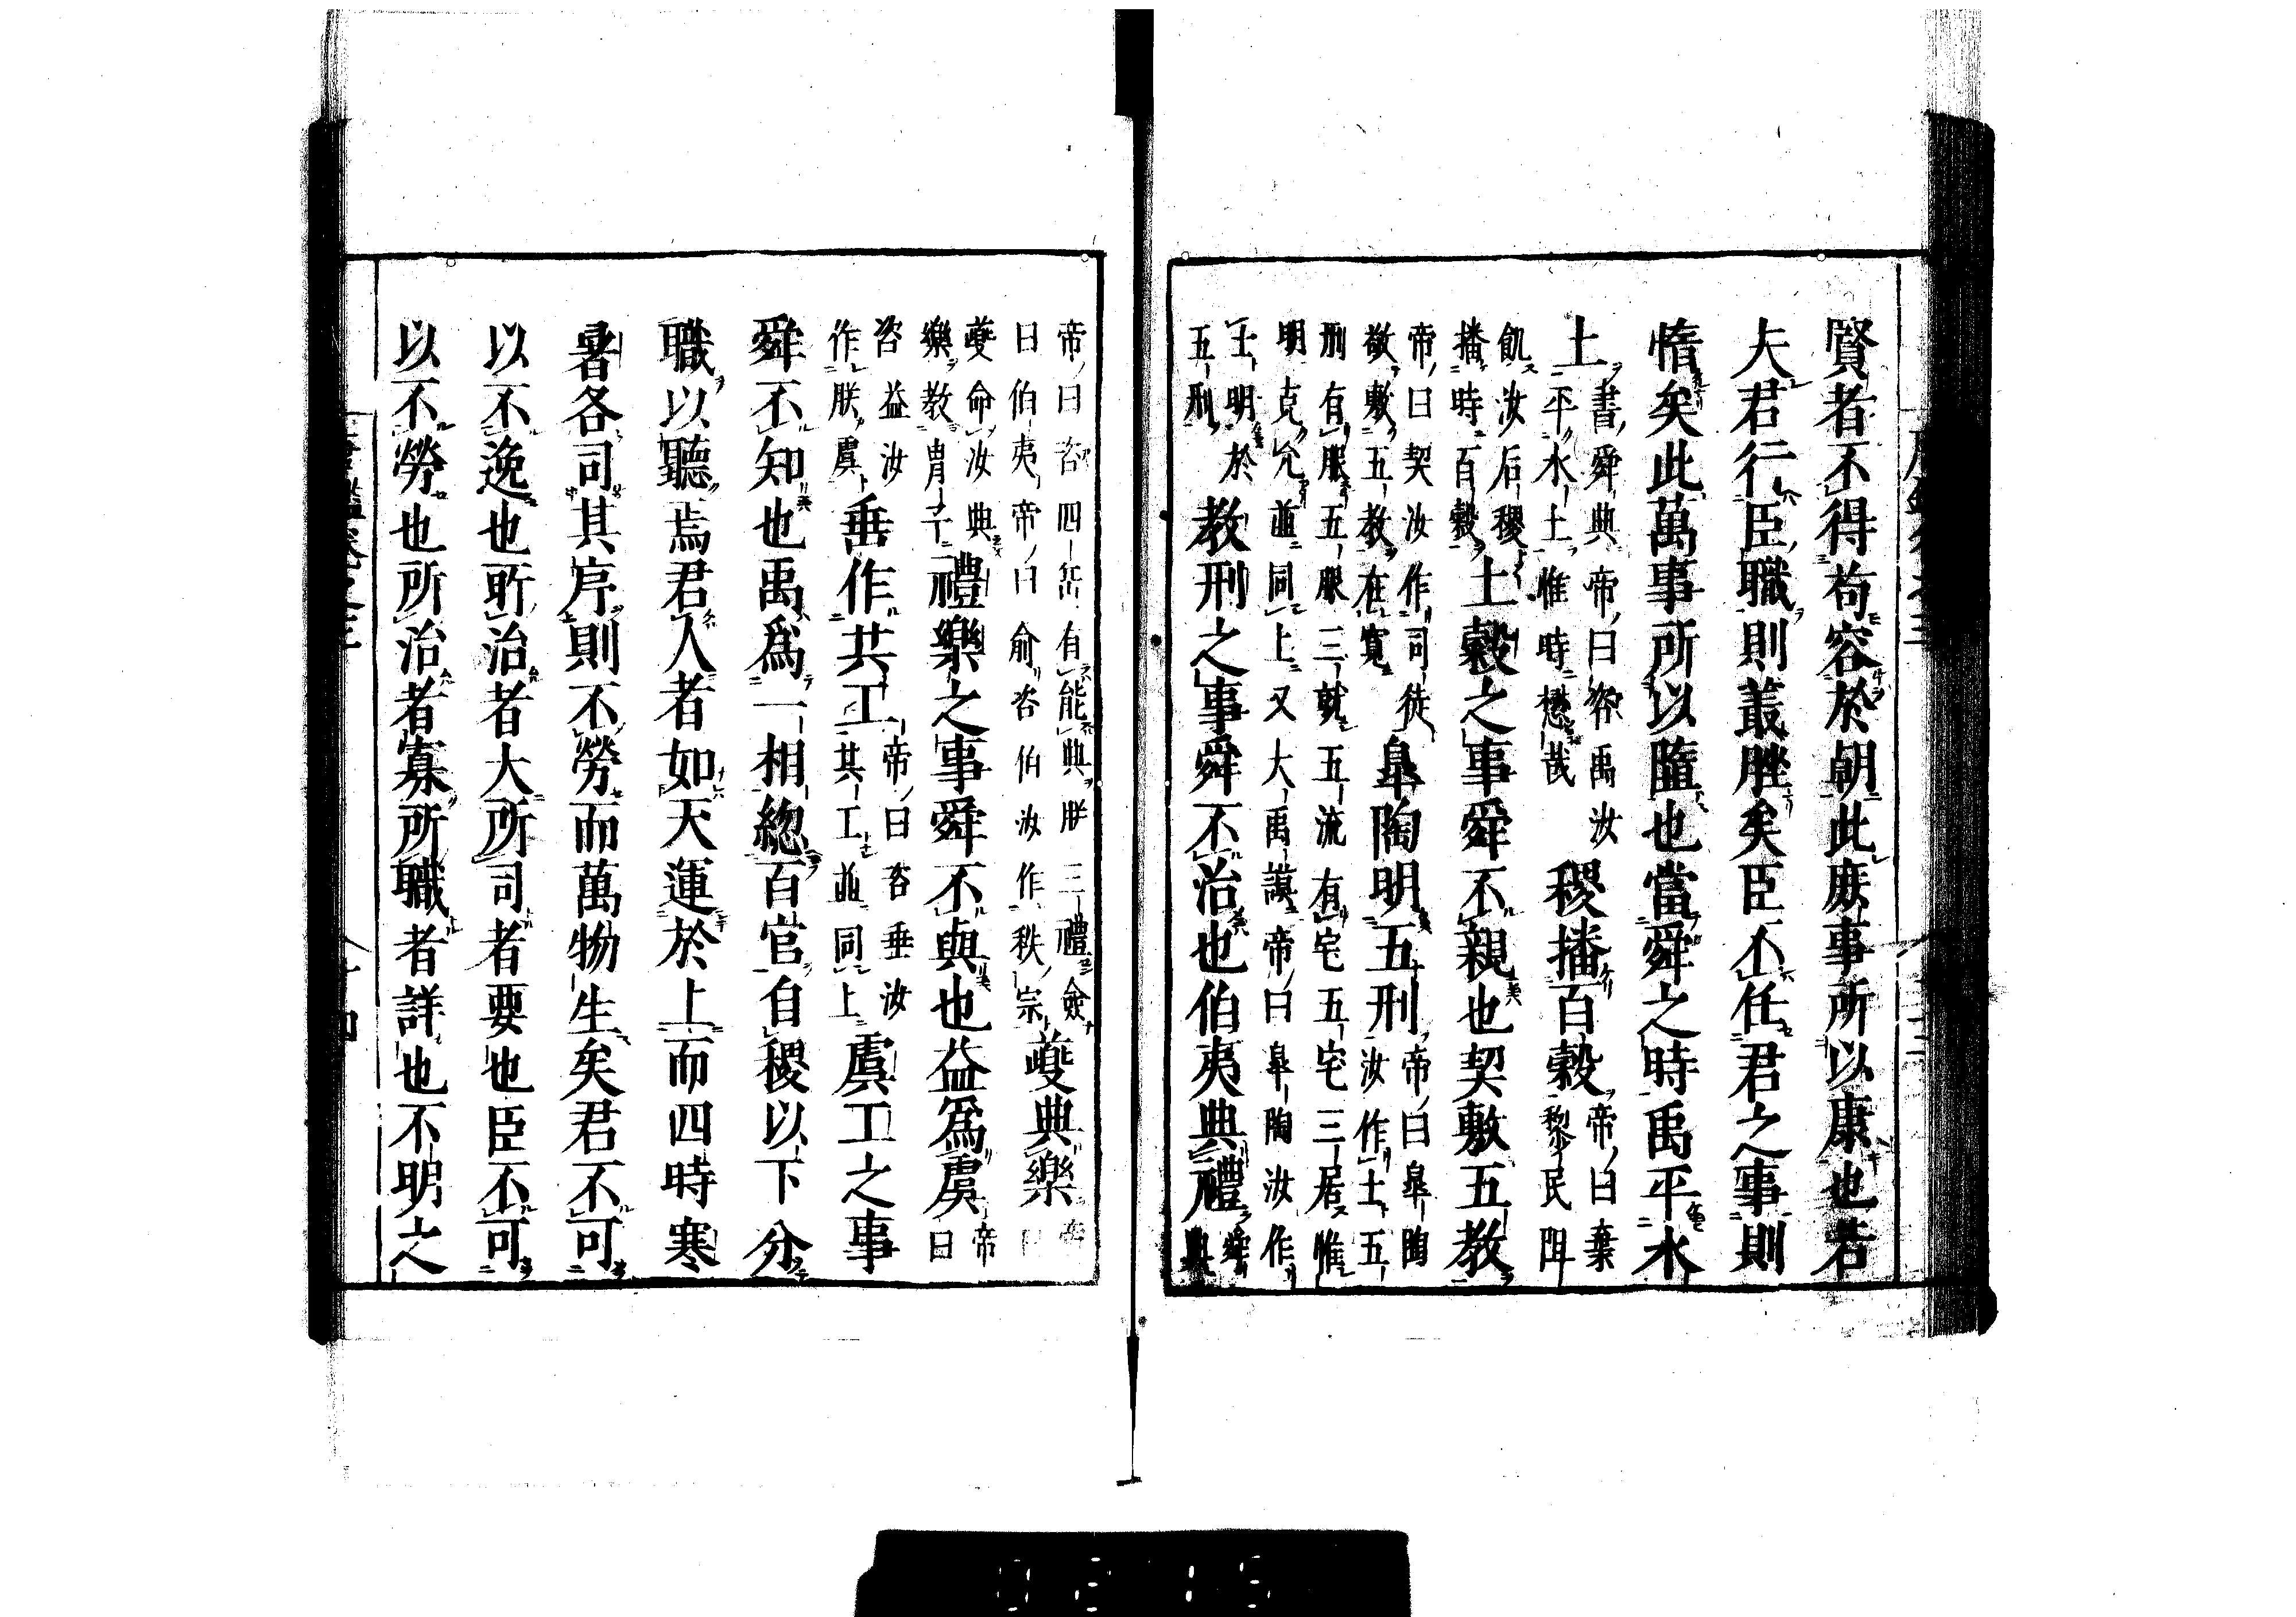 賢者不得苟容於朝此庶事所以康也若
夫君行臣職則叢脞矣臣不任君之事則
惰矣此萬事所以墮也當舜之時禹平水
土書舜典帝曰咨禹汝平水土惟時懋哉稷播百穀帝曰棄黎民阻
飢汝后稷播時百穀土穀之事舜不親也契敷五教
帝曰契汝作司徒敬敷五教在寬皐陶明五刑帝曰皐陶汝作士五
刑有服五服三就五流有宅五宅三居惟
明克允並同上又大禹謨帝曰皐陶汝作
士明於五刑教刑之事舜不治也伯夷典禮舜典
帝曰咨四岳有能典朕三禮僉曰伯夷帝曰俞咨伯汝作秩宗夔典樂帝曰
夔命汝典樂教胄子禮樂之事舜不與也益爲虞帝曰
咨益汝作朕虞垂作共工帝曰咨垂汝其工並同上虞工之事
舜不知也禹爲一相總百官自稷以下分
職以聽焉君人者如天運於上而四時寒
暑各司其序則不勞而萬物生矣君不可
以不逸也所治者大所司者要也臣不可
以不勞也所治者寡所職者詳也不明之